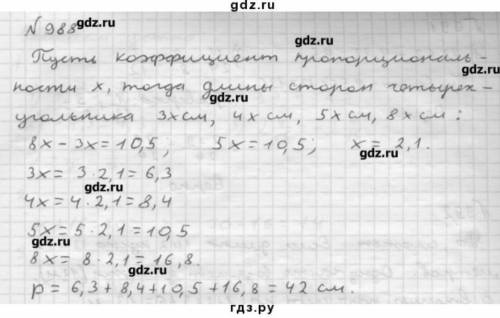 № 988
gdz.ru
Пусть коэффициент пропорциональ-
gdz.ru
ности x, тогда длины сторон четырех-
угольника 3x см, 4x см, 5x см, 8x см:
gdz.ru
8x - 3x = 10,5; 5x = 10,5; x = 2,1.
gdz.ru gdz.ru
3x = 3 · 2,1 = 6,3
gdz.ru
4x = 4 · 2,1 = 8,4
5x = 5 · 2,1 = 10,5
gdz.ru gdz.ru
8x = 8 · 2,1 = 16,8.
gdz.ru
p = 6,3 + 8,4 + 10,5 + 16,8 = 42 см.
гдз.ру